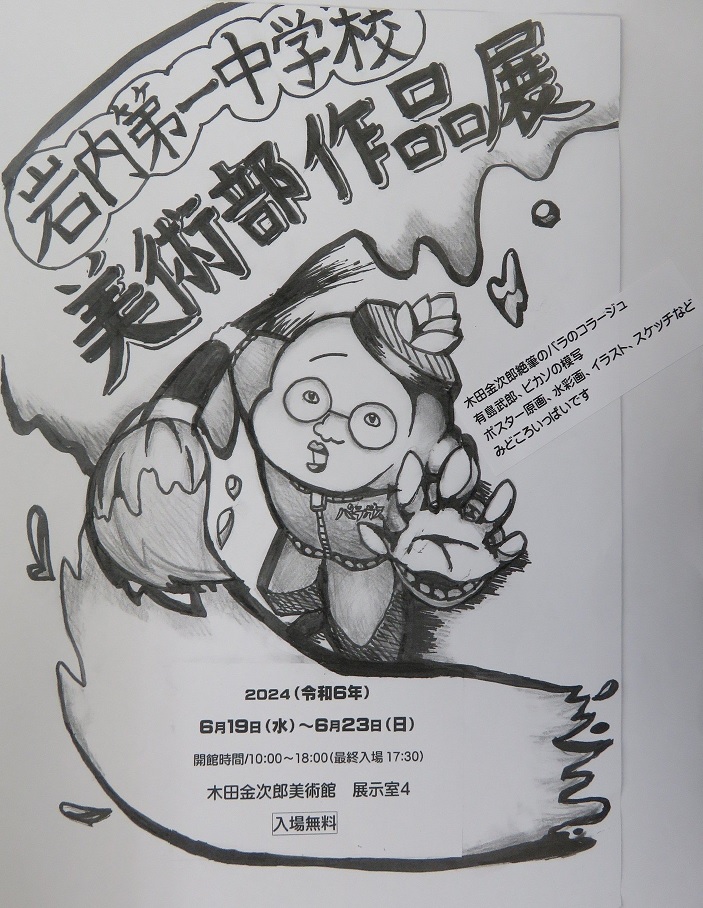 岩内第一中学校
美術部作品展
木田金次郎絶筆のバラのコラージュ
有島武郎、ピカソの模写
ポスター原画、水彩画、イラスト、スケッチなど
みどころいっぱいです
2024（令和6年）
6月19日（水）～6月23日（日）
開館時間/10:00～18:00（最終入場 17:30）
木田金次郎美術館　展示室4
入場無料